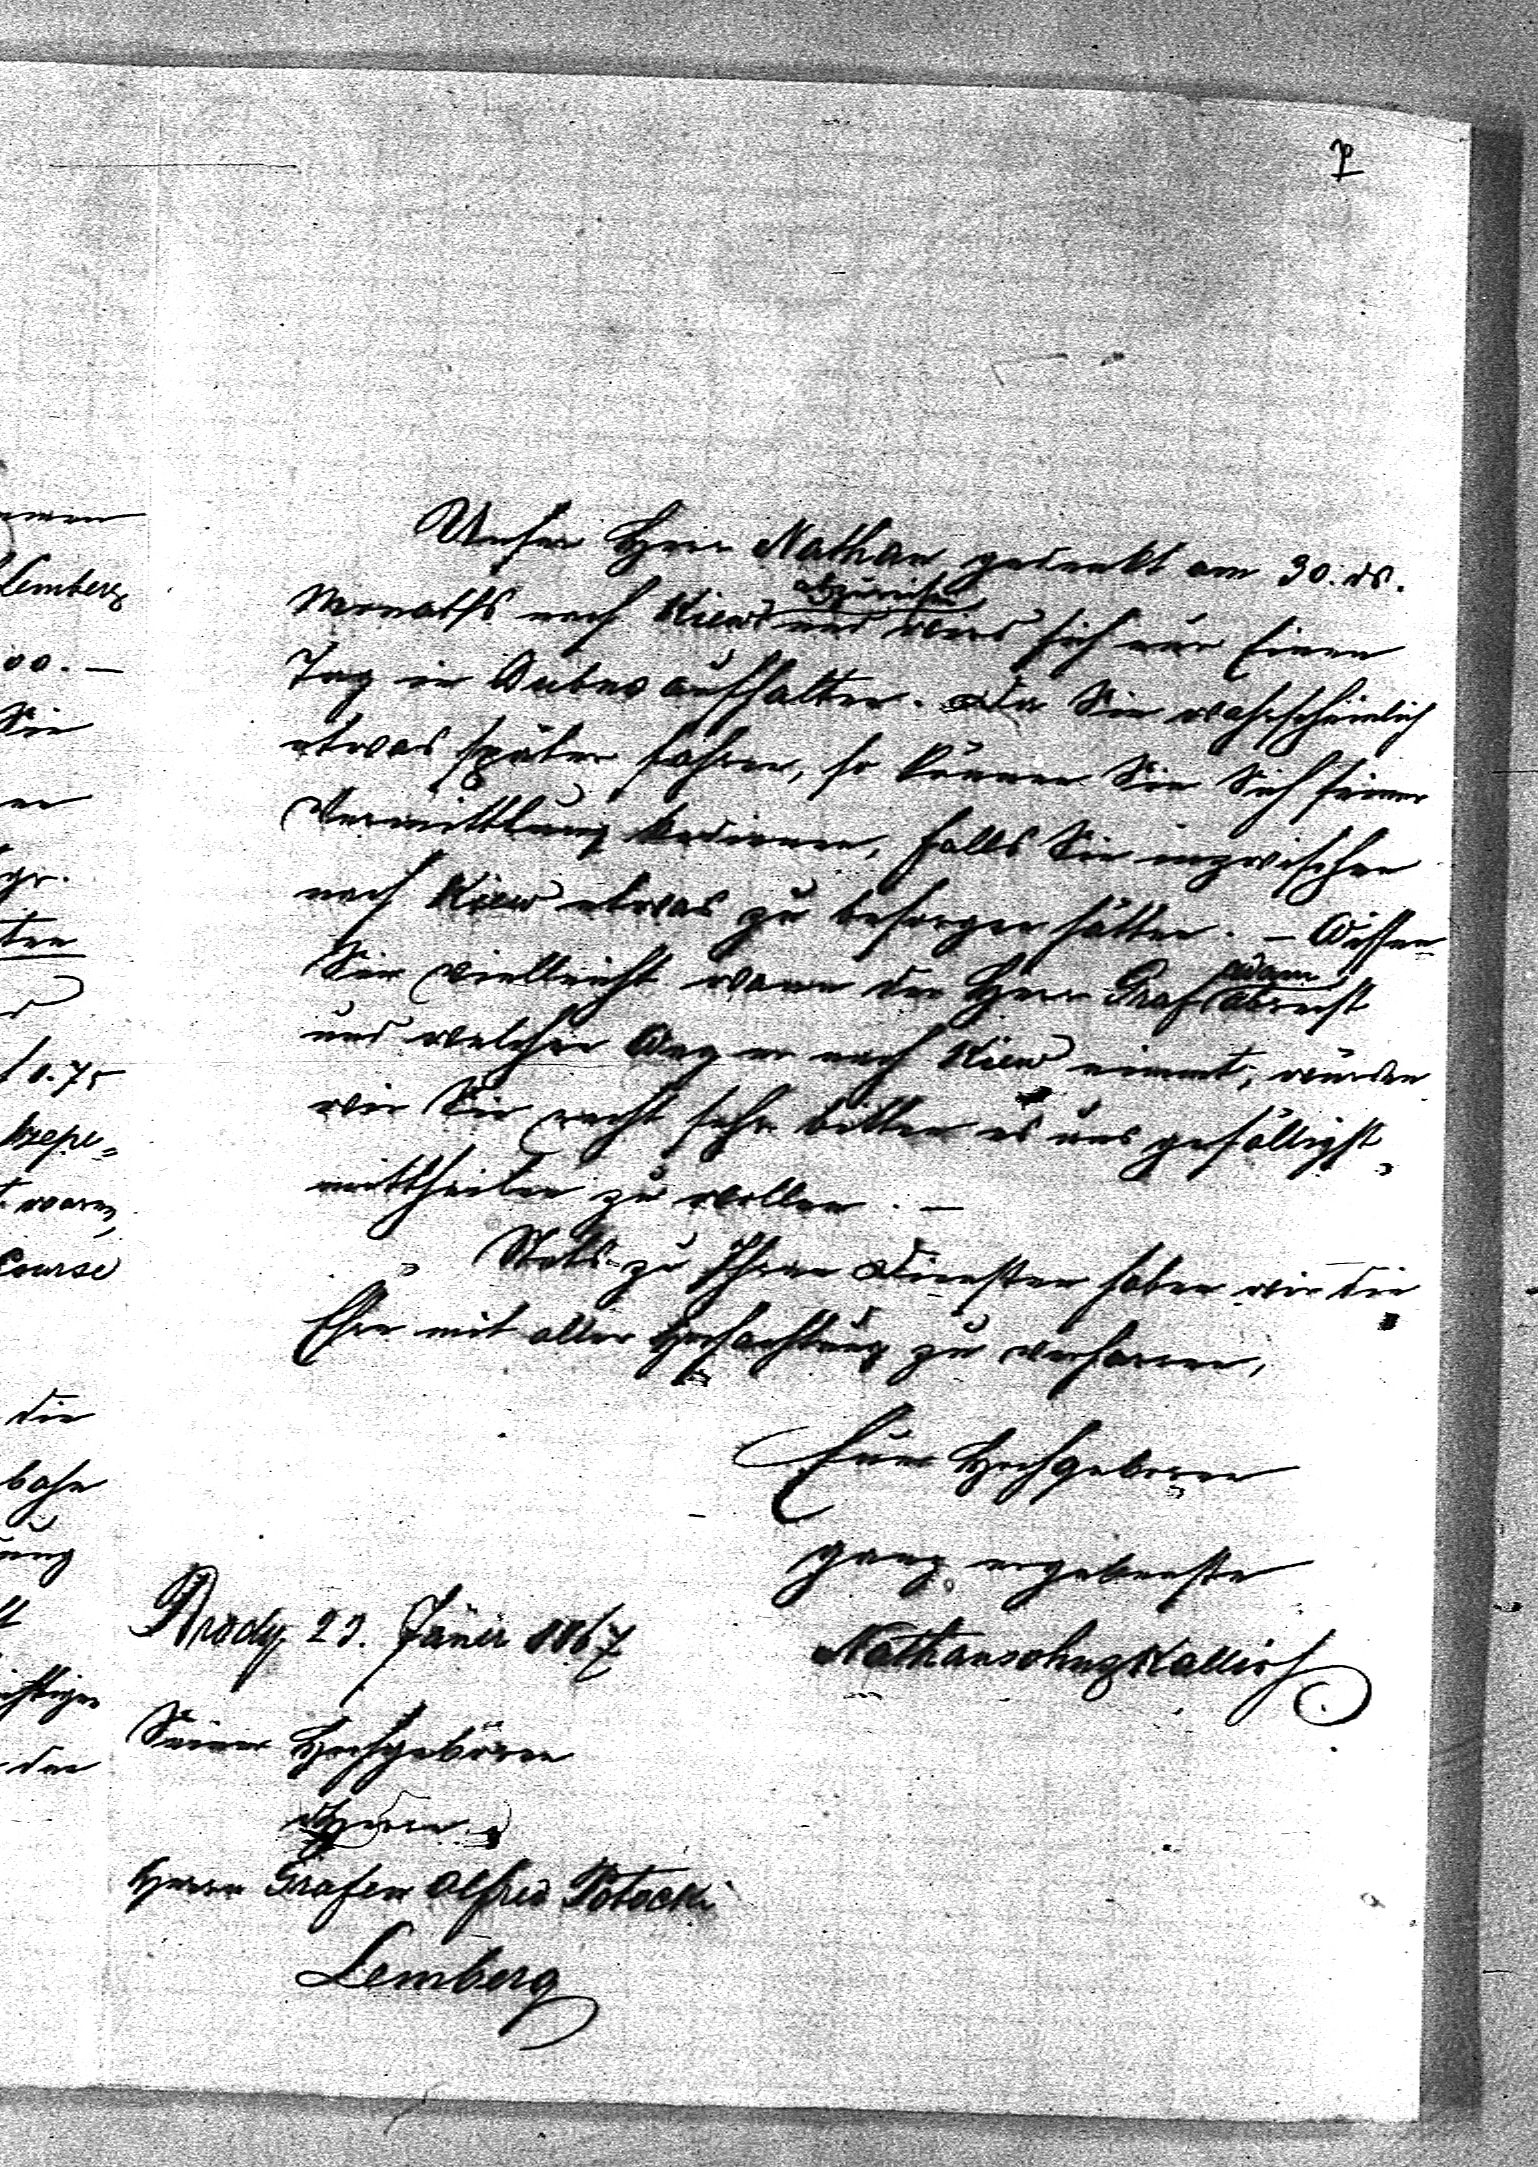 Unser Herr Nathan gedenkt am 30. ds.
Monaths nach Kiew abzureisen und wird sich nur Einen
Tag in Dubno aufhalten. Da Sie wahrscheinlich
etwas später fahren, so können Sie Sich seiner
Vermittlung bedienen, falls Sie inzwischen
nach Kiew etwas zu besorgen hätten. – Wissen
Sie vielleicht wann der Herr Graf Adam abreist
und welchen Weg er nach Kiew nimmt, würden
wir Sie recht sehr bitten es uns gefälligst
mittheilen zu wollen. –
Stets zu Ihren Diensten haben wir die
Ehre mit aller Hochachtung zu verharren,
Euer Hochgeboren
ganz ergebenste
Nathansohn & Kallir
Brody 23. Jäner 1867
Seiner Hochgeboren
Herrn
Herrn Grafen Alfred Potocki
Lemberg
Lemberg
00. –
Sie
10.75
waren
Course
die
bahn
der